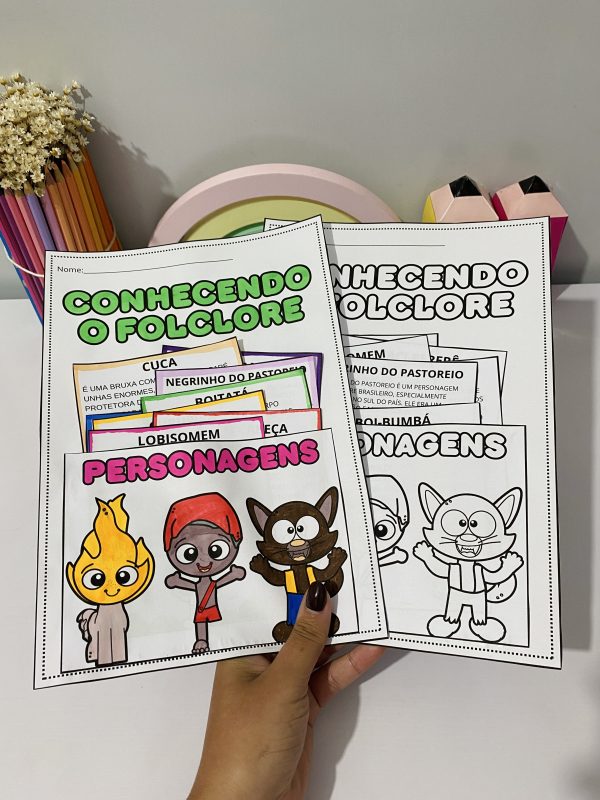 Nome:
CONHECENDO
O FOLCLORE
CUCA
É UMA BRUXA COM
UNHAS ENORMES
PROTETORA D
NEGRINHO DO PASTOREIO
BOITATÁ
LOBISOMEM
EÇA
PERSONAGENS
NHECENDO
FOLCLORE
MEM
RINHO DO PASTOREIO
DO PASTOREIO É UM PERSONAGEM
RE BRASILEIRO, ESPECIALMENTE
NO SUL DO PAÍS. ELE ERA UM
BOI-BUMBÁ
ONAGENS